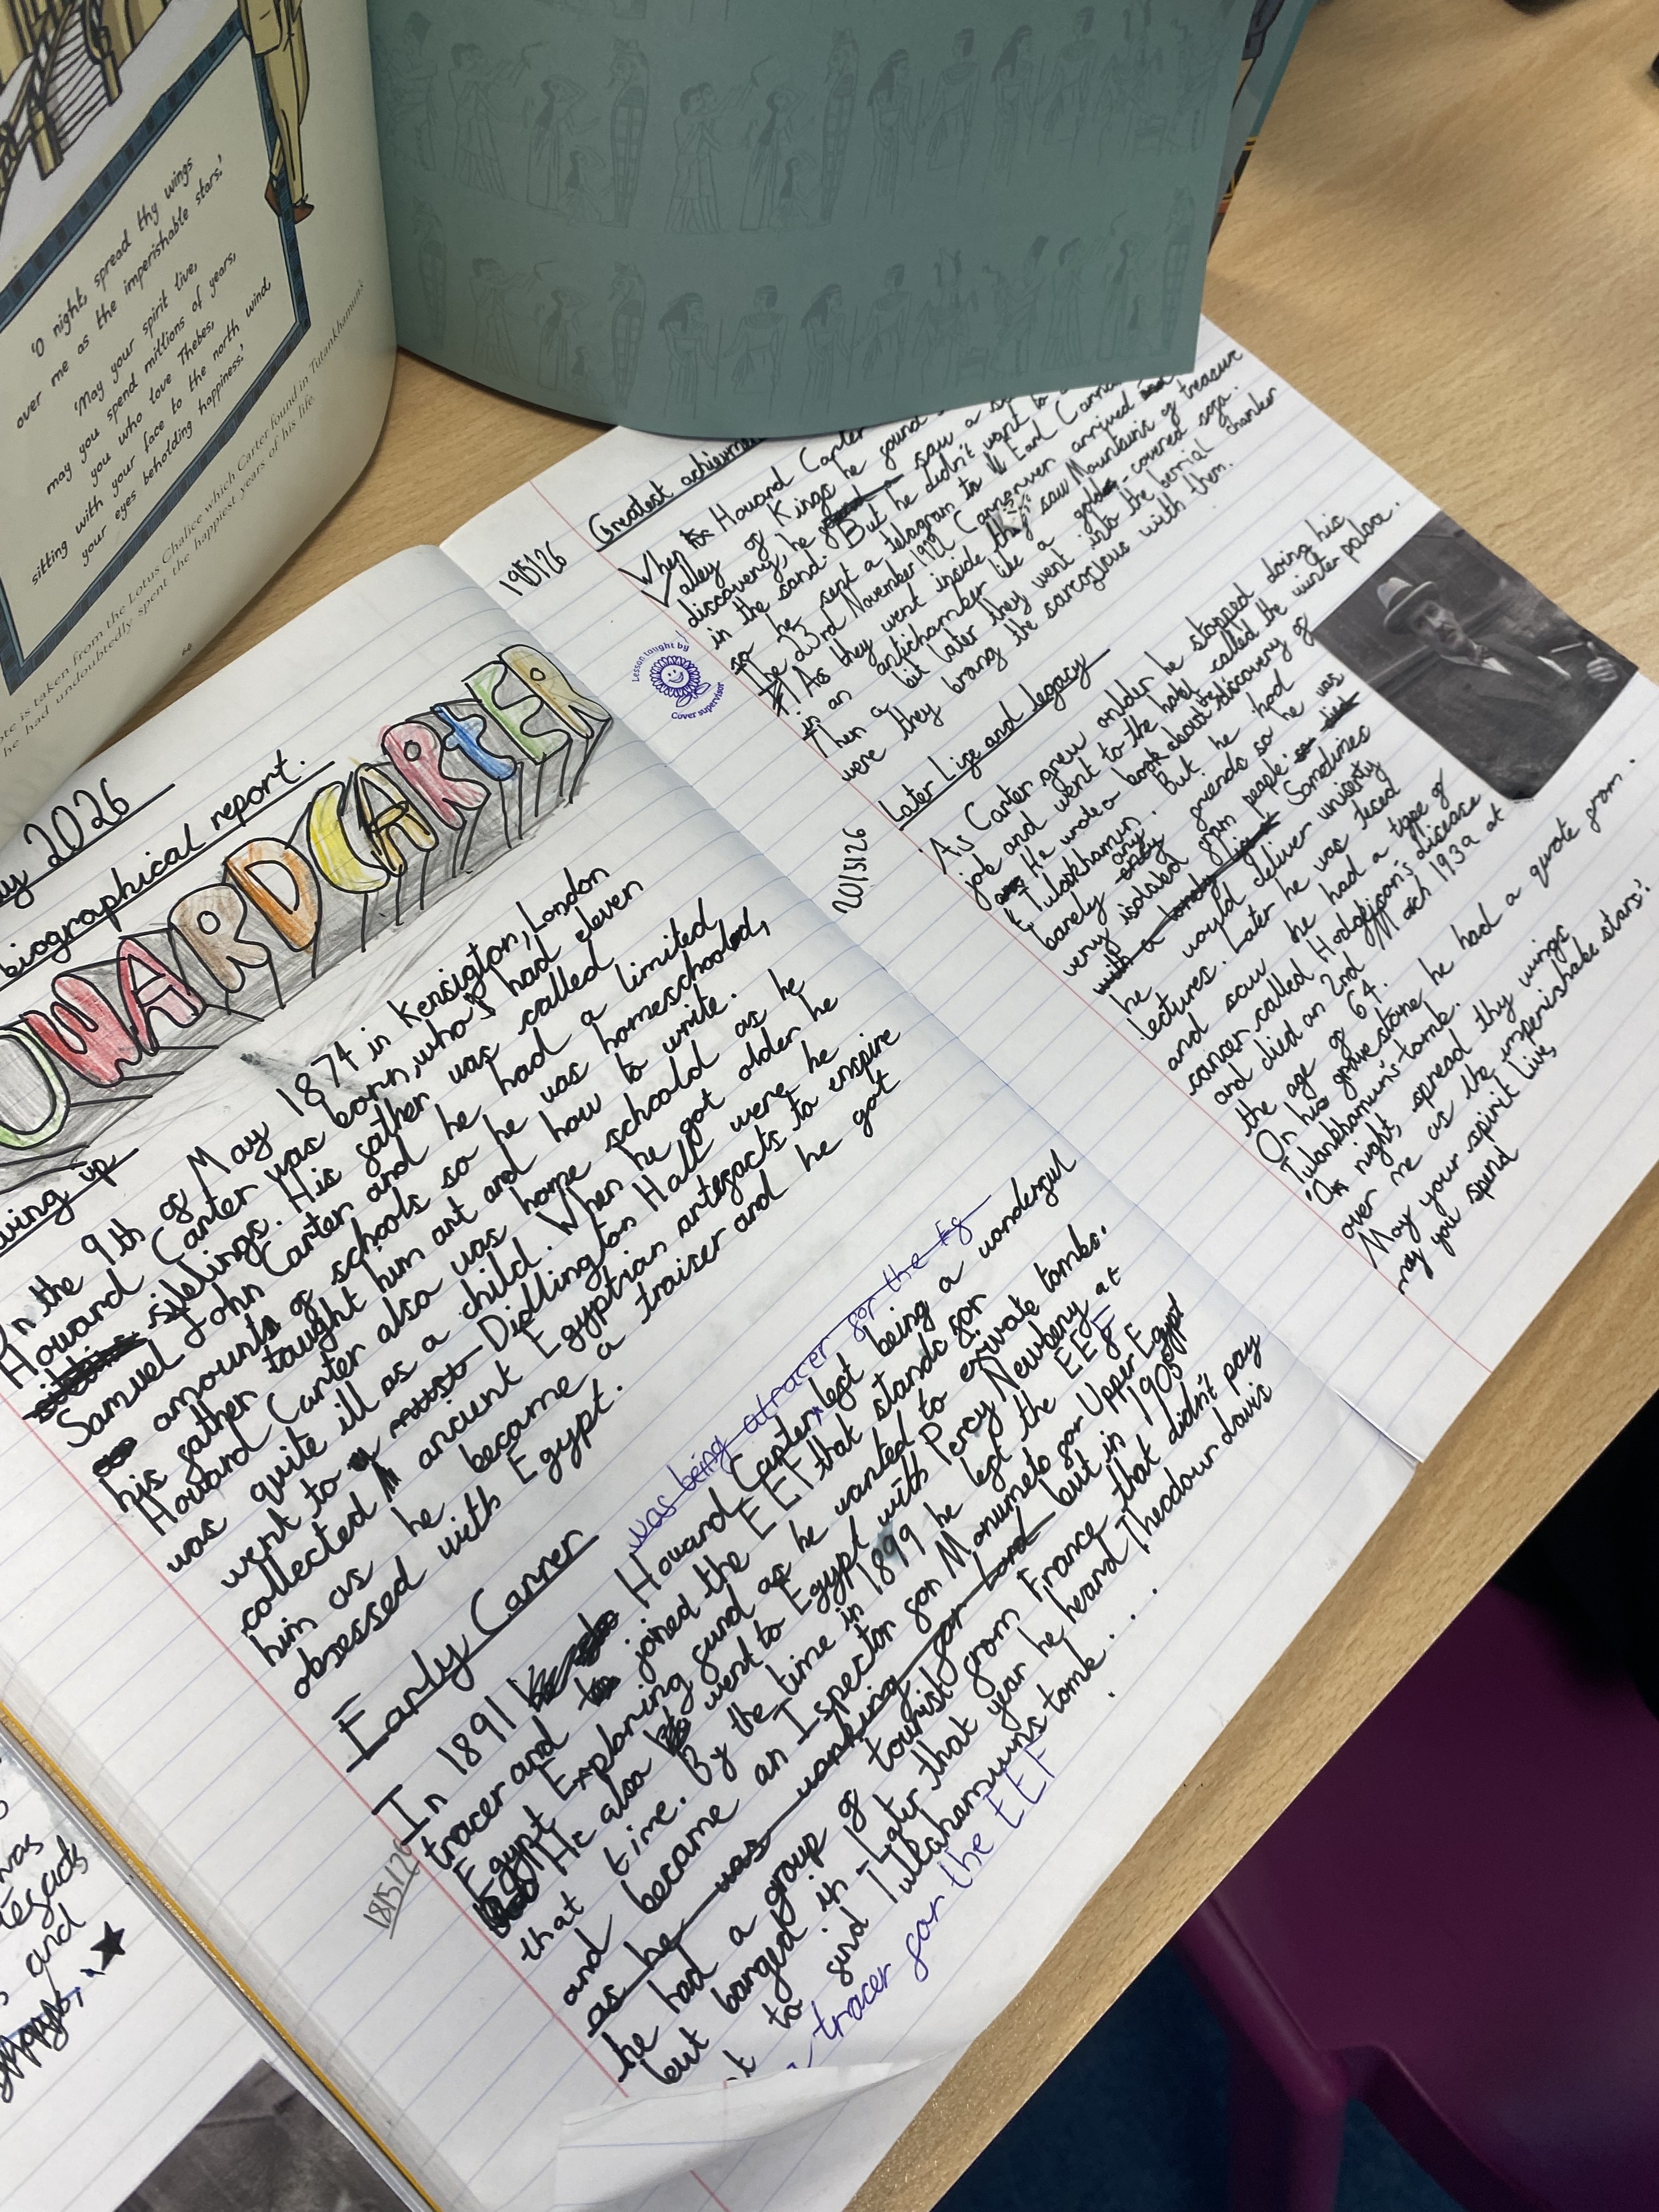 'O night, spread thy wings
over me as the imperishable stars.'
'May your spirit live,
may you spend millions of years,
you who love Thebes,
sitting with your face to the north wind,
your eyes beholding happiness.'
is taken from the Lotus Chalice which Carter found in Tutankhamun's
he had undoubtedly spent the happiest years of his life.
2026
biographical report.
WARD CARTER
up
the 9th of May 1874 in Kensigton, London
Howard Carter was born, who had eleven
sibelings. His father was called
Samuel John Carter and he had a limited
amounts of schools so he was homeschooled,
his father taught him art and how to write.
Howard Carter also was home schoold as he
was quite ill as a child. When he got older he
went to Didlington Hall were he
collected ancient Egyptrian artefacts to enspire
him as he became a traiser and he got
obsessed with Egypt.
Early Carrer
was being a tracer for the Eg
18/5/26
In 1891 Howard Carter left being a wonderful
tracer and joined the EEF that stands for
Egypt Exploring fund as he wanted to exivate tombs.
He also went to Egypt with Percy Newbery at
that time. By the time in 1899 he left the EEF
and became an Ispector for Monumets for Upper Egypt
as he was working for lord but in 1905
he had a group of tourist from France that didn't pay
but barged in. Later that year he heard Theodour davis
to find Tutankhamuns tomb . . .
tracer for the EEF
19/5/26
Greatest achieveme
When Howard Carter
Valley of Kings he found
discovery, he saw a
in the sand. But he didn't want to
so he sent a telagram to Earl Carna
The 23rd November 1922 Carnarven arrived
As they went inside they saw Mountains of treasure
in an antichamber like a gold-covered sofa.
Then a bit later they went into the berrial chamber
were they brang the sarcofaus with them.
Lesson taught by
Cover supervisor
20/5/26
Later Life and legacy
As Carter grew onlder he stopped doing his
job and went to the hotel called the winter palace.
He wrote a book about his discovery of
Tutankhamun. But he had
barely any friends so he was
very isolated from people
with a lonely life Sometimes
he would deliver university
lectures. Later he was tired
and saw he had a type of
cancer called Hodgison's disease
and died on 2nd March 1939 at
the age of 64.
On his grave stone he had a quote from.
Tutankhamun's tomb.
'On night, spread thy wings
over me as the imperishake stars.'
May your spirit live,
may you spend